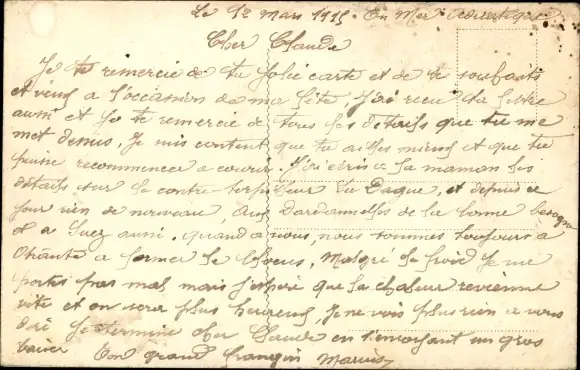 Le 12 Mars 1915. En Mer Adriatique
Cher Claude
Je te remercie de ta jolie carte et de te souhaits
et vœux a l'occasion de ma fête, J'ai reçu ta lettre
aussi et je te remercie de tous les détails que tu me
met dessus. Je suis content que tu ailles mieux et que tu
puisse recommencer a courir. J'ai écris a ta maman les
détails sur le contre-torpilleur La Dague, et depuis ce
jour rien de nouveau, Aux Dardannelles de la bonne besogne
et a Suez aussi, quand a nous, nous sommes toujours a
Otrante a fermer le blocus, Malgré le froid Je me
portes pas mal mais j'espère que la chaleur revienne
vite et on sera plus heureux, Je ne vois plus rien a vous
dire Je termine cher Claude en t'envoyant un gros
baiser Ton grand frangin Marius